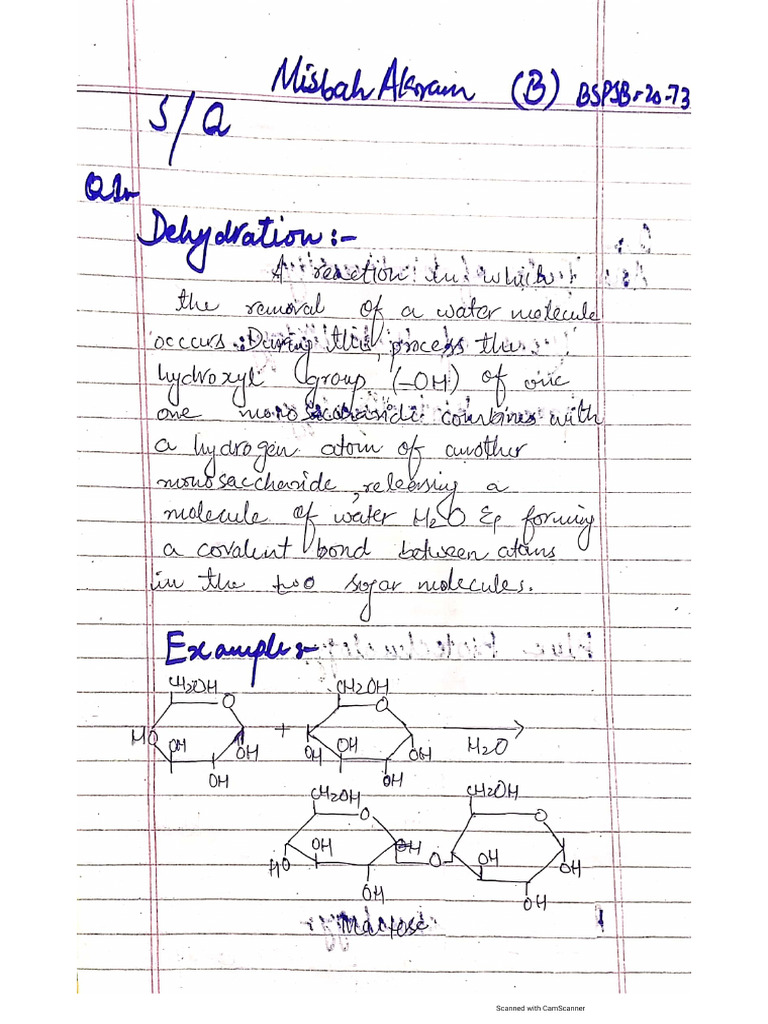 Misbah Akram (B) BSPSB-20-73
S/Q
Q1:-
Dehydration:-
A reaction in which
the removal of a water molecule
occurs. During this, process the
hydroxyl group (-OH) of one
one monosaccharide combines with
a hydrogen atom of another
monosaccharide, releasing a
molecule of water H2O & forming
a covalent bond between atoms
in the two sugar molecules.
Example:-
CH2OH O HO OH OH OH
+
CH2OH O OH OH OH OH
H2O
CH2OH O HO OH OH OH
O
CH2OH O OH OH OH
Maltose
Scanned with CamScanner